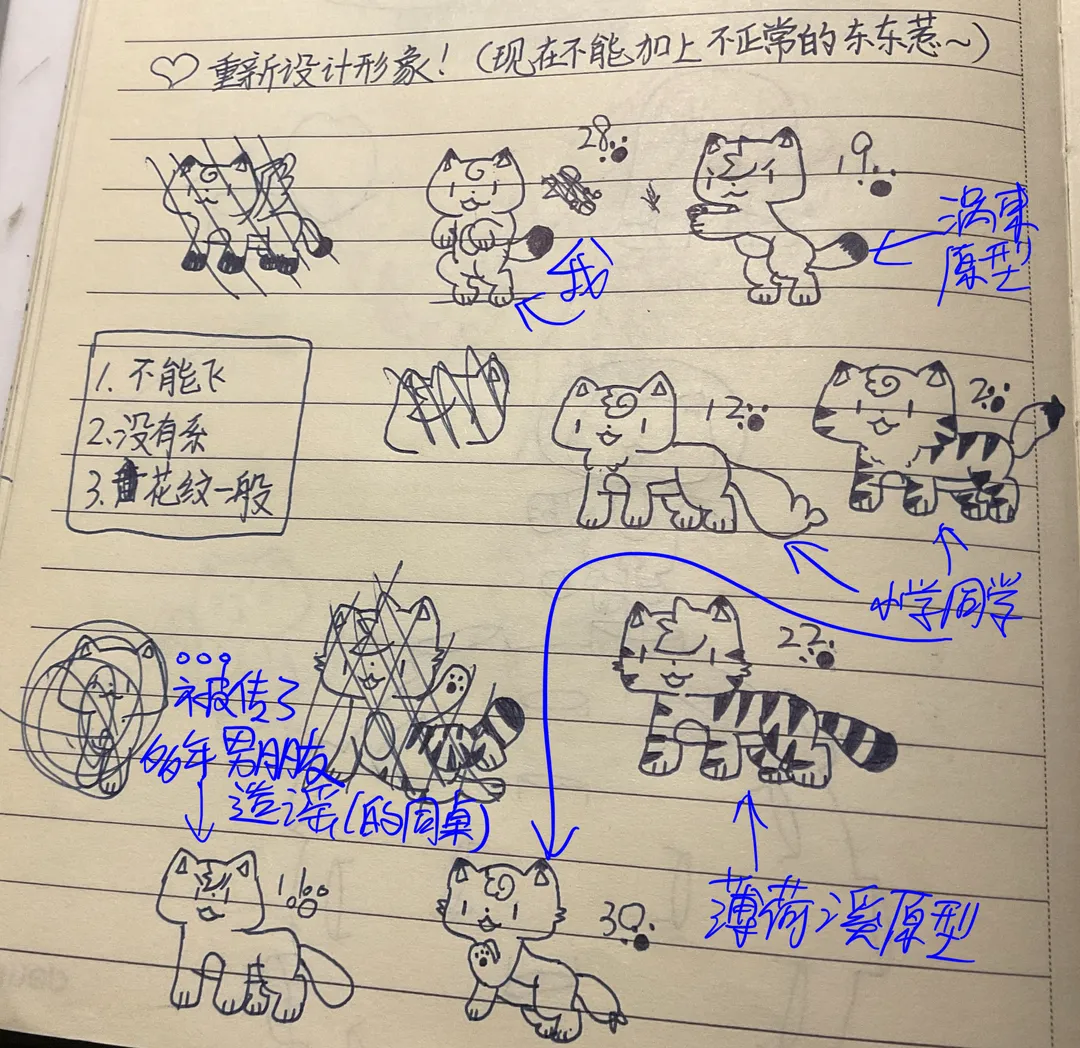 ♡重新设计形象！(现在不能加上不正常的东东惹~)
28
19
涡東
原型
我
1. 不能飞
2. 没有系
3. 花纹一般
12
2
小学同学
22
。。。
被传了
66年男朋友
造谣(的同桌)
1
30
薄荷溪原型